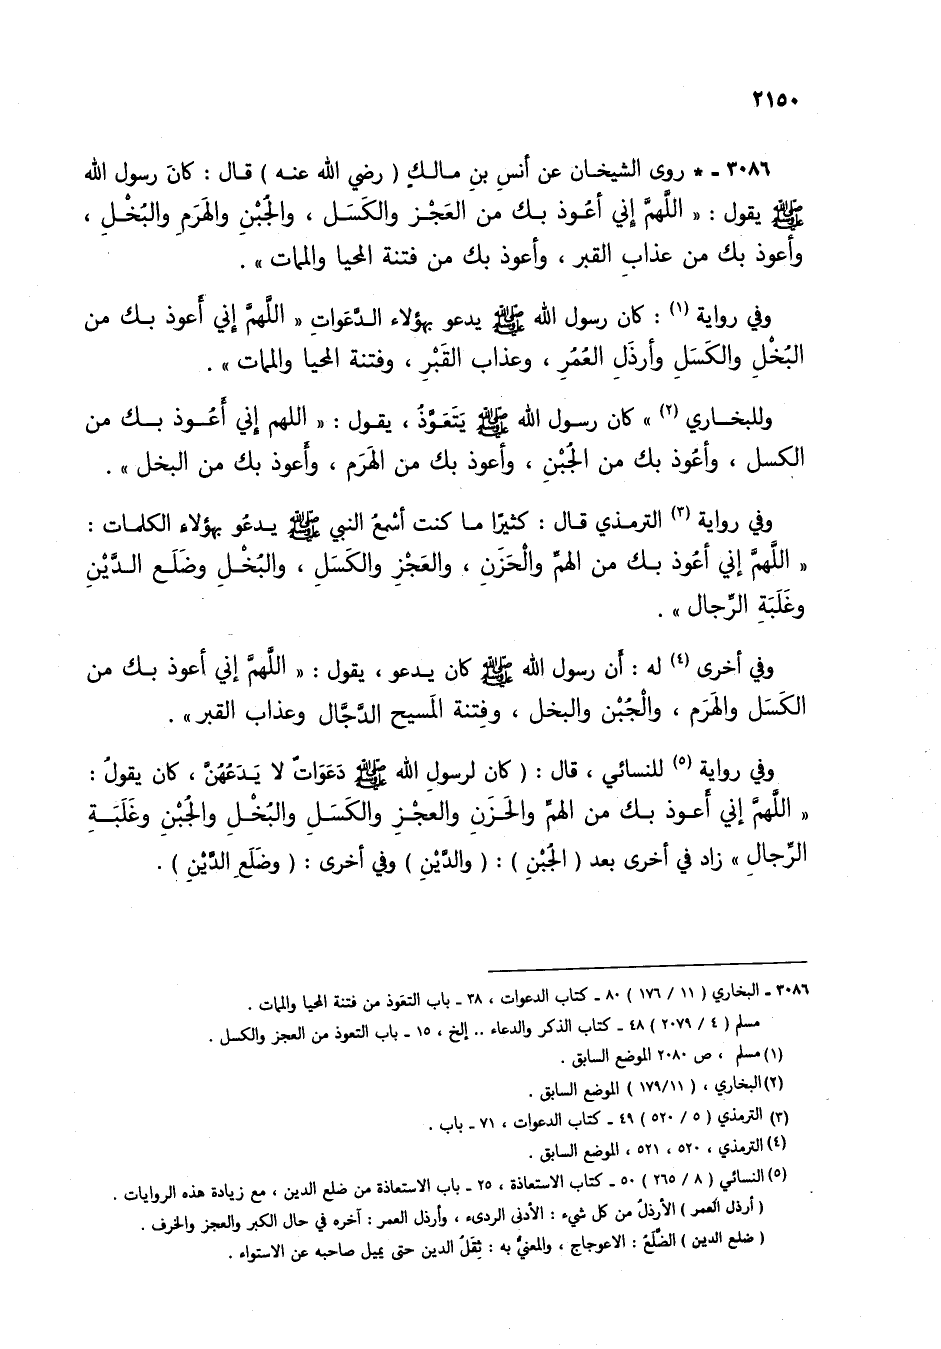 ٢١٥٠
٣٠٨٦ ـ * روى الشيخان عن أنس بنِ مالكٍ ( رضي الله عنه ) قال : كانَ رسول الله
ﷺ يقول : « اللَّهمَّ إني أعُوذ بك من العَجْز والكَسَل ، والجُبْنِ والهَرَمِ والبُخْلِ ،
وأعوذ بك من عذابِ القبر ، وأعوذ بك من فتنة المحيا والممات » .
وفي رواية (١) : كان رسول الله ﷺ يدعو بهؤلاء الدَّعَواتِ « اللَّهمَّ إِني أَعوذ بك من
البُخْلِ والكَسَلِ وأرذَلِ العُمُرِ ، وعذاب القَبْرِ ، وفتنة المحيا والممات » .
وللبخاري (٢) » كان رسول الله ﷺ يَتَعَوَّذُ ، يقول : « اللهم إِني أَعُوذ بك من
الكسل ، وأعُوذ بك من الجُبْنِ ، وأعوذ بك من الهَرَمِ ، وأَعوذ بك من البخل » .
وفي رواية (٣) الترمذي قال : كثيرًا ما كنت أسْمعُ النبي ﷺ يدعُو بهؤلاء الكلمات :
« اللَّهمَّ إني أعُوذ بك من الهمِّ والْحَزَنِ ، والعَجْزِ والكَسَلِ ، والبُخْلِ وضَلَعِ الدَّيْنِ
وغَلَبَةِ الرِّجال » .
وفي أخرى (٤) له : أَن رسول الله ﷺ كان يدعو ، يقول : « اللَّهمَّ إني أعوذ بك من
الكَسَل والهَرَم ، والْجُبْن والبخل ، وفتنة المَسيح الدَّجَّال وعذاب القبر» .
وفي رواية (٥) للنسائي ، قال : ( كان لرسولِ الله ﷺ دَعَوَاتٌ لا يَدَعُهُنَّ ، كان يقولُ :
« اللَّهمَّ إني أَعوذ بك من الهمِّ والحَزَنِ والعجْزِ والكَسَلِ والبُخْلِ والجُبْنِ وغَلَبَةِ
الرِّجالِ » زاد في أخرى بعد ( الجُبْنِ ) : ( والدَّيْنِ ) وفي أخرى : ( وضَلَعِ الدَّيْنِ ) .
٣٠٨٦ ـ البخاري ( ١١ / ١٧٦ ) ٨٠ ـ كتاب الدعوات ، ٣٨ ـ باب التعوذ من فتنة المحيا والممات .
مسلم ( ٤ / ٢٠٧٩ ) ٤٨ ـ كتاب الذكر والدعاء .. إلخ ، ١٥ ـ باب التعوذ من العجز والكسل .
(١) مسلم ، ص ٢٠٨٠ الموضع السابق .
(٢) البخاري ، ( ١٧٩/١١ ) الموضع السابق .
(٣) الترمذي ( ٥ / ٥٢٠ ) ٤٩ ـ كتاب الدعوات ، ٧١ ـ باب .
(٤) الترمذي ، ٥٢٠ ، ٥٢١ ، الموضع السابق .
(٥) النسائي ( ٨ / ٢٦٥ ) ٥٠ ـ كتاب الاستعاذة ، ٢٥ ـ باب الاستعاذة من ضلع الدين ، مع زيادة هذه الروايات .
( أرذل العُمر ) الأرذلُ من كل شيء : الأدنى الرديء ، وأرذل العمر : آخره في حال الكبر والعجز والخرف .
( ضلع الدين ) الضَّلَعُ : الاعوجاج ، والمعنيُّ به : ثِقَلُ الدين حتى يميل صاحبه عن الاستواء .